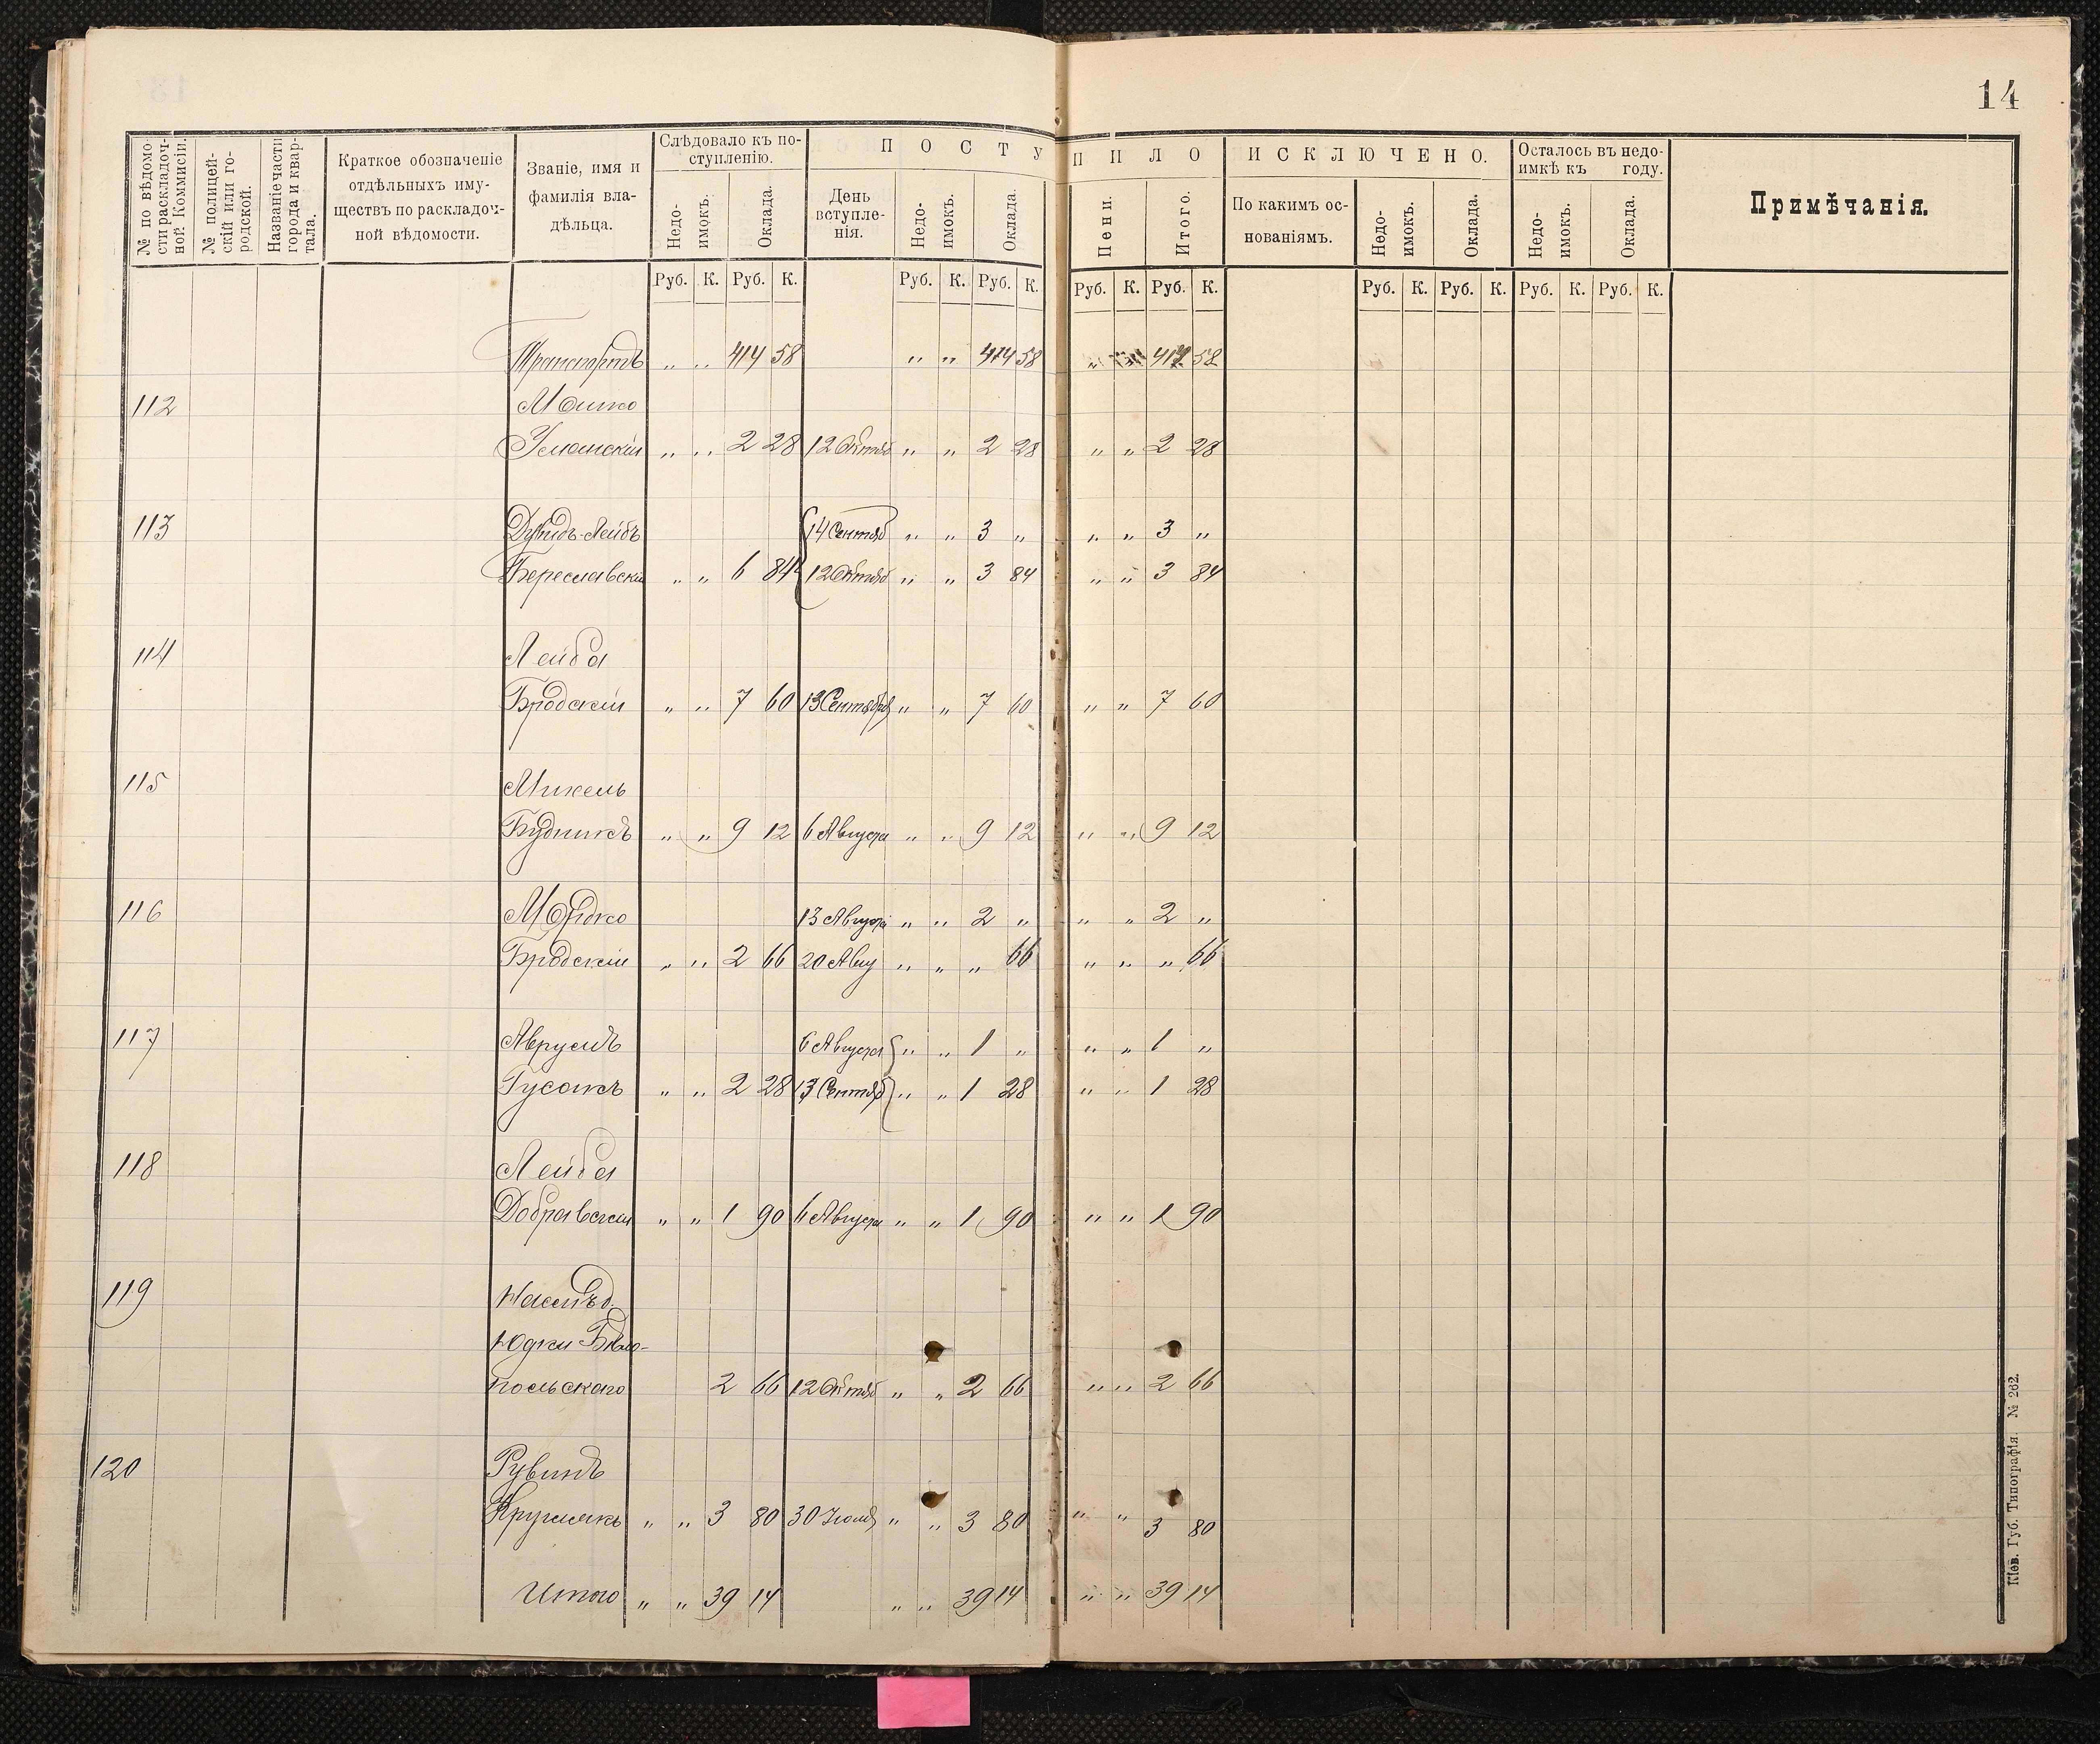 14
№ по вѣдомости раскладочной Коммисіи.
№ полицейскій или городской.
Названіе части города и квартала.
Краткое обозначеніе отдѣльныхъ имуществъ по раскладочной вѣдомости.
Званіе, имя и фамилія владѣльца.
Слѣдовало къ поступленію.
Недоимокъ. Оклада.
ПОСТУПИЛО
День вступленія. Недоимокъ. Оклада. Пени. Итого.
ИСКЛЮЧЕНО.
По какимъ основаніямъ. Недоимокъ. Оклада.
Осталось въ недоимкѣ къ году.
Недоимокъ. Оклада.
Примѣчанія.
Руб. К. Руб. К. Руб. К. Руб. К. Руб. К. Руб. К. Руб. К. Руб. К. Руб. К. Руб. К.
Транспортъ „ „ 414 58 „ „ 414 58 „ „ 414 58
112 Мошко
„ „ 2 28 12 Октяб „ „ 2 28 „ „ 2 28
113 Дувидъ-Лейбъ 14 Сентяб „ „ 3 „ „ „ 3 „
Береславскій „ „ 6 84 12 Октяб „ „ 3 84 „ „ 3 84
114 Лейба
Бродскій „ „ 7 60 13 Сентября „ „ 7 60 „ „ 7 60
115 Михель
Будникъ „ „ 9 12 6 Августа „ „ 9 12 „ „ 9 12
116 Мордко 13 Августа „ „ 2 „ „ „ 2 „
Бродскій „ „ 2 66 20 Авгу „ „ „ 66 „ „ „ 66
117 Аврумъ 6 Августа „ „ 1 „ „ „ 1 „
Гусакъ „ „ 2 28 13 Сентяб „ „ 1 28 „ „ 1 28
118 Лейба
„ „ 1 90 6 Августа „ „ 1 90 „ „ 1 90
119 Наслѣд.
Юдки Бѣло-
польскаго 2 66 12 Октяб „ „ 2 66 „ „ 2 66
120 Рувинъ
Кругликъ „ „ 3 80 30 Іюля „ „ 3 80 „ „ 3 80
Итого „ „ 39 14 „ „ 39 14 „ „ 39 14
Кіев. Губ. Типографія. № 262.